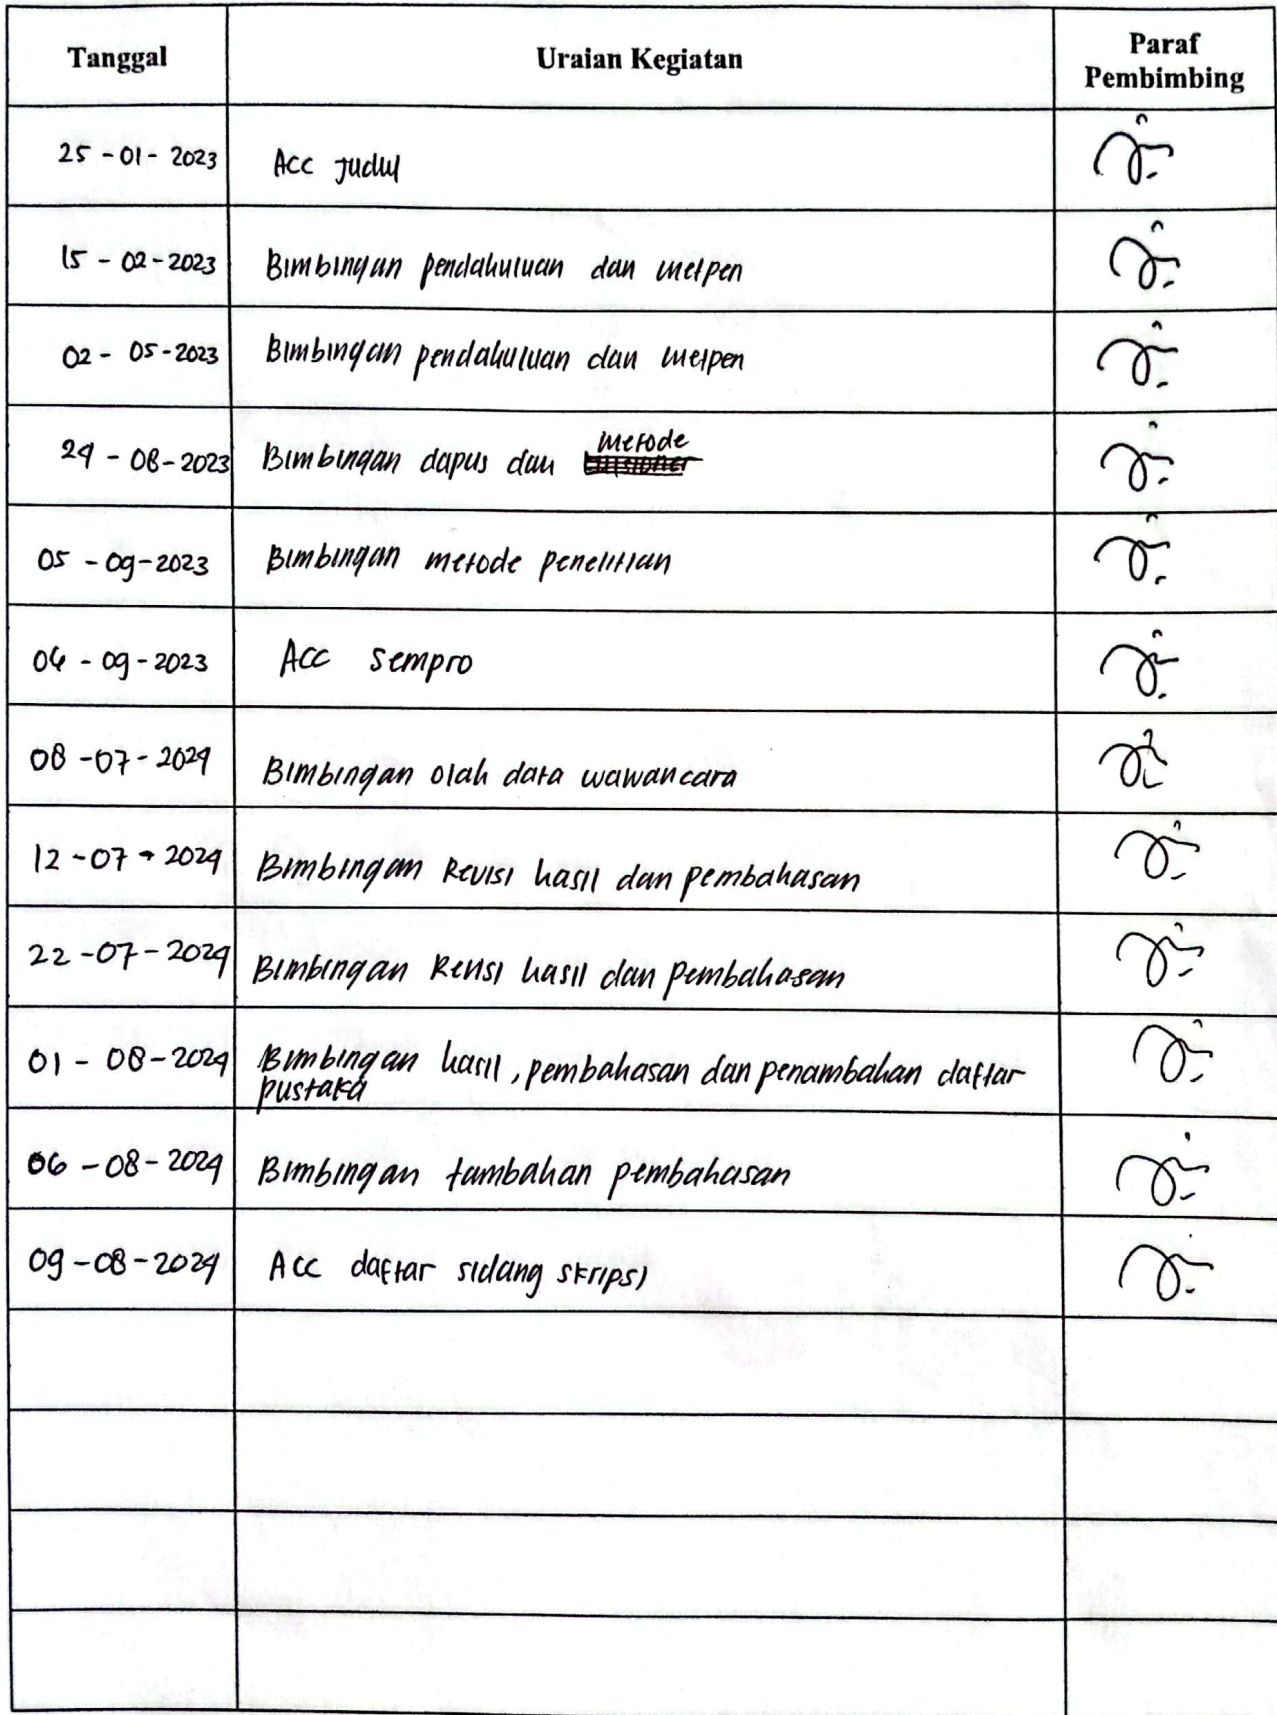 Tanggal Uraian Kegiatan Paraf Pembimbing
25 - 01 - 2023 Acc Judul
15 - 02 - 2023 Bimbingan pendahuluan dan metpen
02 - 05 - 2023 Bimbingan pendahuluan dan metpen
24 - 08 - 2023 Bimbingan dapus dan metode
05 - 09 - 2023 Bimbingan metode penelitian
06 - 09 - 2023 Acc sempro
08 - 07 - 2024 Bimbingan olah data wawancara
12 - 07 - 2024 Bimbingan Revisi hasil dan pembahasan
22 - 07 - 2024 Bimbingan Revisi hasil dan pembahasan
01 - 08 - 2024 Bimbingan hasil, pembahasan dan penambahan daftar
pustaka
06 - 08 - 2024 Bimbingan tambahan pembahasan
09 - 08 - 2024 Acc daftar sidang skripsi